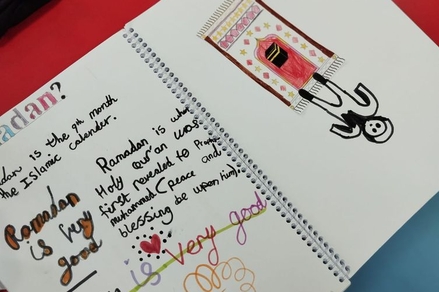 adan?
dan is the 9th month
the Islamic calender.
Ramadan is when
Holy Qur'an was
first revealed to Prophet
muhammad (peace and
blessing be upon him)
Ramadan
is very
good
is very good